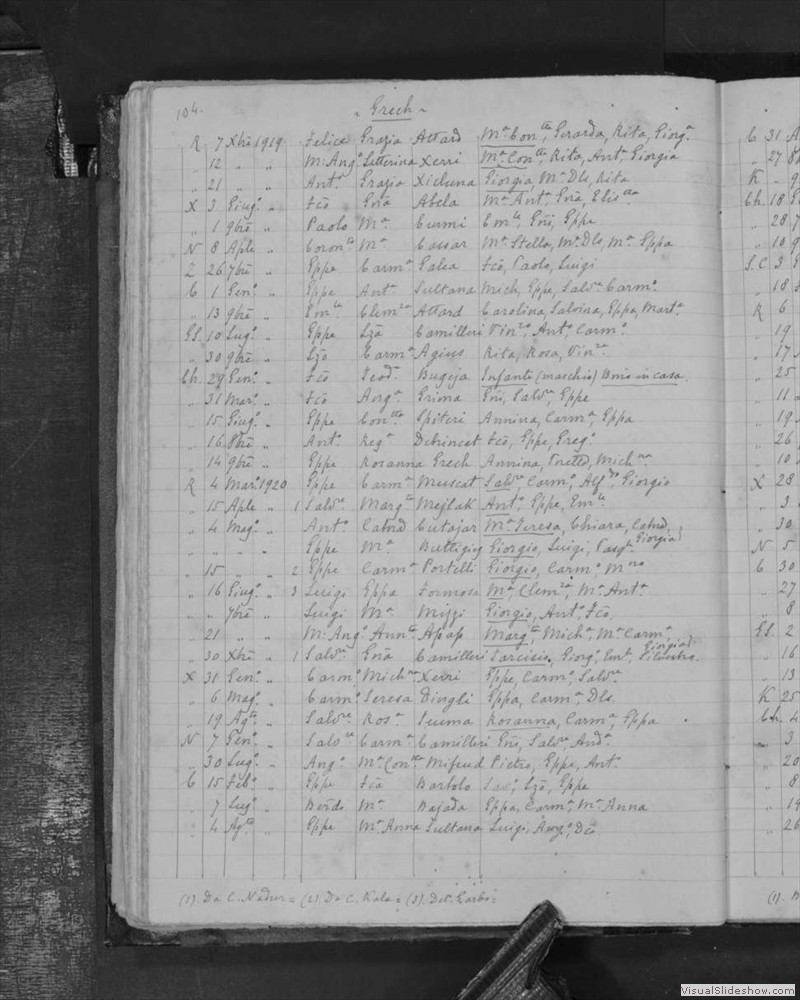 104.
„ Grech „
R 7 Xbre 1919 Felice Grazia Attard Ma Conta, Gerarda, Rita, Giorga
„ 12 „ „ M. Ango Letterina Xerri Ma Conta, Rita, Anta, Giorgia
„ 21 „ „ Anto Grazia Xicluna Giorgia, Ma Dls, Rita
X 3 Giugo „ Fco Gna Abela Ma Anta, Gna, Elistta
„ 1 9bre „ Paolo Ma Curmi Emle, Gni, Gppe
N 8 Aple „ Coronto Ma Cassar Ma Stella, Ma Dls, Ma Gppa
Z 26 7bre „ Gppe Carma Galea Fco, Paolo, Luigi
C 1 Geno „ Gppe Anta Sultana Mich, Gppe, Salvre Carmo
„ 13 9bre „ Emle Clemza Attard Carolina, Salvina, Gppa, Marta
GS. 10 Lugo „ Gppe Lza Camilleri Vinza, Anto, Carmo
„ 30 9bre „ Lzo Carma Agius Rita, Rosa, Vinza
Ch. 29 Geno „ Fco Teoda Bugeja Infante (maschio) Bmo in casa.
„ 31 Maro „ Fco Anga Grima Gni, Salvre, Gppe
„ 15 Giugo „ Gppe Contta Spiteri Annina, Carma, Gppa
„ 16 8bre „ Anto Rega Debrincat Fco, Gppe, Grego
„ 14 9bre „ Gppe Rosanna Grech Annina, Michna
R 4 Maro 1920 Gppe Carma Muscat Salvre Carmo, Alfdo, Giorgio
„ 15 Aple „ 1 Salvre Margta Mejlak Anto, Gppe, Emle
„ 4 Mago „ Anto Catnd Cutajar Ma Teresa, Chiara, Catnd,
Giorgia
„ „ „ „ Gppe Ma Buttigieg Giorgio, Luigi, Pasqle
„ 15 „ 2 Gppe Carma Portelli Giorgio, Carmo, Mno
„ 16 Giugo „ 3 Luigi Gppa Formosa Ma Clemza, Ma Anta
„ „ 7bre „ Luigi Ma Mizzi Giorgio, Anto, Fco
„ 21 „ „ M. Ang Aunta Apap Margta Micha, Ma Carma,
Giorgia
„ 30 Xbre „ 1 Salvre Gna Camilleri Tarcisio, Giorgo, Emle, Silvestro.
X 31 Geno „ Carmo Michna Xerri Gppe, Carmo, Salvre
„ 6 Mago „ Carmo Teresa Dingli Gppa, Carma, Dls.
„ 19 Agto „ Salvre Rosa Scerma Rosanna, Carma, Gppa
N 7 Geno „ Salvre Carma Camilleri Gni, Salvre, Anda
„ 30 Lugo „ Ango Ma Conta Mifsud Pietro, Gppe, Anto
C 15 Febo „ Gppe Fca Bartolo Savo, Lzo, Gppe
„ 7 Lugo „ Berdo Ma Bajada Gppa, Carma, Ma Anna
„ 4 Agto „ Gppe Ma Anna Sultana Luigi, Ango, Dco.
(1). Da C. Nadur = (2). Da C. Kala = (3). Del Garbo =
C 31 A
„ 27
K „ 9
Ch. 18
„ 28
„ 10
S.C 3
„ 18
R 6
„ 19
„ 17
„ 25
„ 11
„ 19
„ 26
„ 10
X 28
„ 3
„ 30
N 5
C 30
„ 27
„ 8
GS. 2
„ 16
„ 13
K 25
Ch. 4
„ 3
„ 20
„ 8
„ 19
„ 26
(1).
VisualSlideshow.com